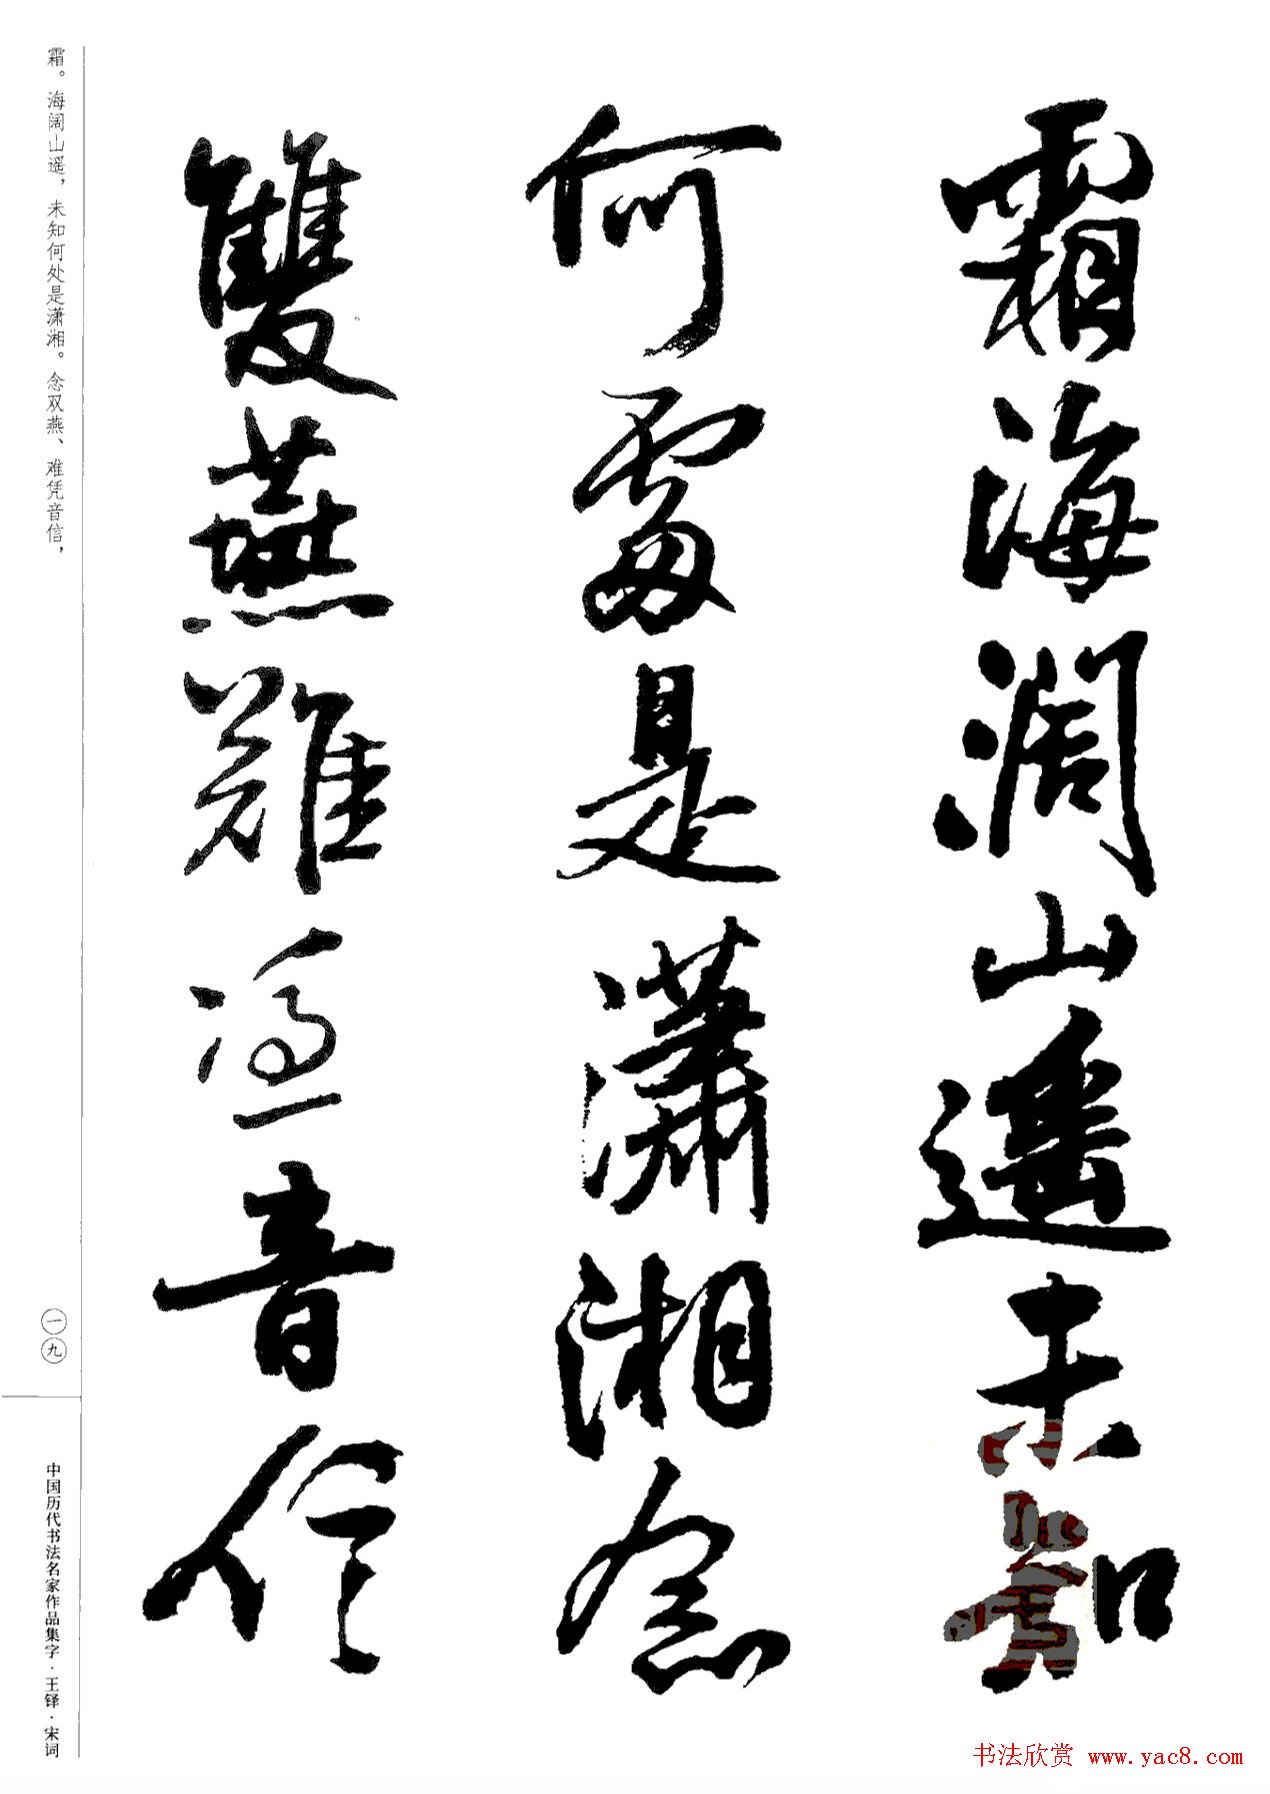 霜海阔山遥未知
何處是瀟湘念
雙燕難憑音信
霜。海阔山遥，未知何处是潇湘。念双燕、难凭音信，
一九
中国历代书法名家作品集字·王铎·宋词
书法欣赏 www.yac8.com